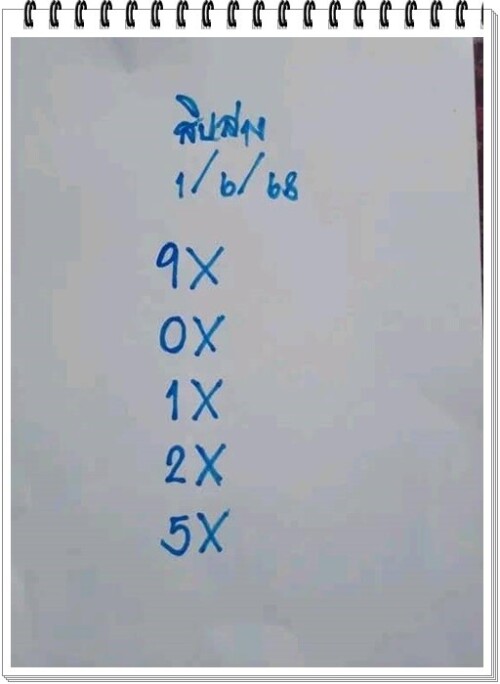 สิบล่าง
1/6/68
9X
0X
1X
2X
5X